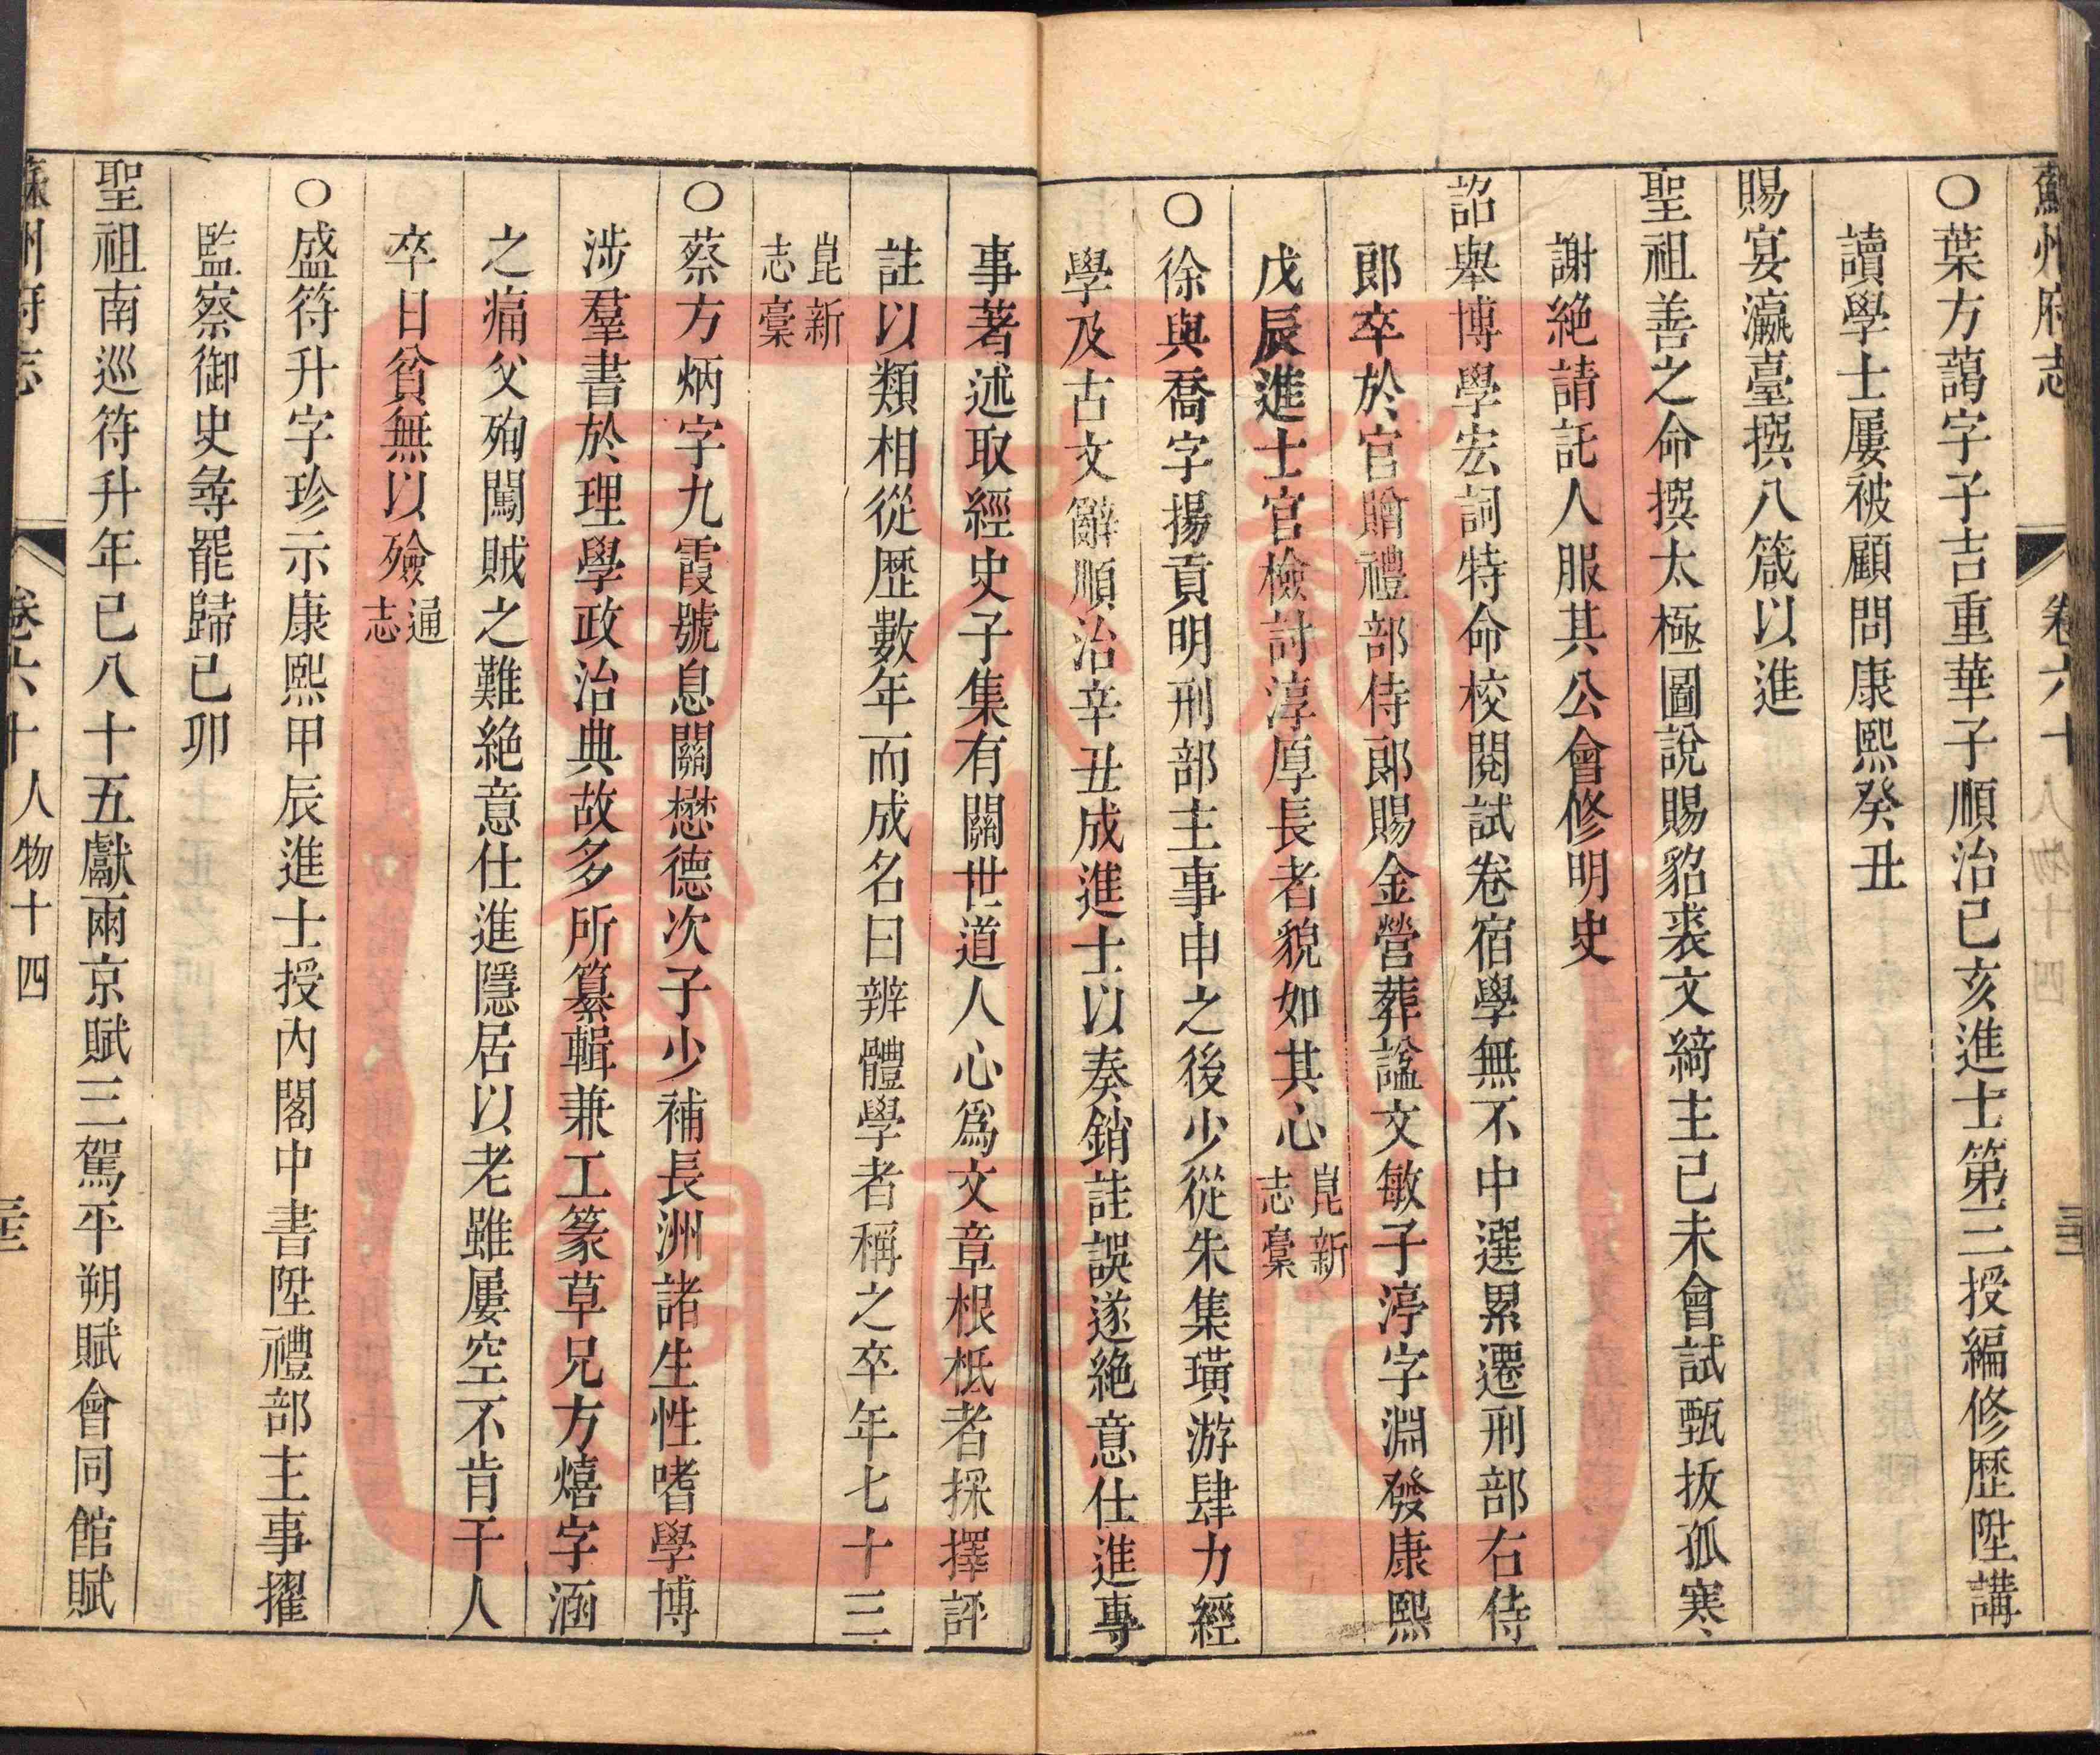 蘇州府志 卷六十 人物十四
○葉方藹字子吉重華子順治己亥進士第三授編修歷陞講
讀學士屢被顧問康熙癸丑
賜宴瀛臺撰八箴以進
聖祖善之命撰太極圖說賜貂裘文綺主己未會試甄拔孤寒
謝絶請託人服其公會修明史
詔舉博學宏詞特命校閱試卷宿學無不中選累遷刑部右侍
郎卒於官贈禮部侍郎賜金營葬諡文敏子渟字淵發康熙
戊辰進士官檢討淳厚長者貌如其心崑新志稾
○徐與喬字揚貢明刑部主事申之後少從朱集璜游肆力經
學及古文辭順治辛丑成進士以奏銷註誤遂絶意仕進專
事著述取經史子集有關世道人心爲文章根柢者採擇評
註以類相從歷數年而成名曰辨體學者稱之卒年七十三
崑新志稾
○蔡方炳字九霞號息關懋德次子少補長洲諸生性嗜學博
涉羣書於理學政治典故多所纂輯兼工篆草兄方熺字涵
之痛父殉闖賊之難絶意仕進隱居以老雖屢空不肯干人
卒日貧無以殮通志
○盛符升字珍示康熙甲辰進士授內閣中書陞禮部主事擢
監察御史尋罷歸己卯
聖祖南巡符升年已八十五獻兩京賦三駕平朔賦會同館賦
蘇州府志 卷六十 人物十四